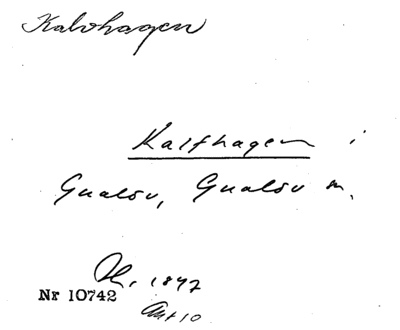 Kalvhagen
Kalfhagen i
Gualöv, Gualöv sn.
1847
Nr 10742
Akt 10